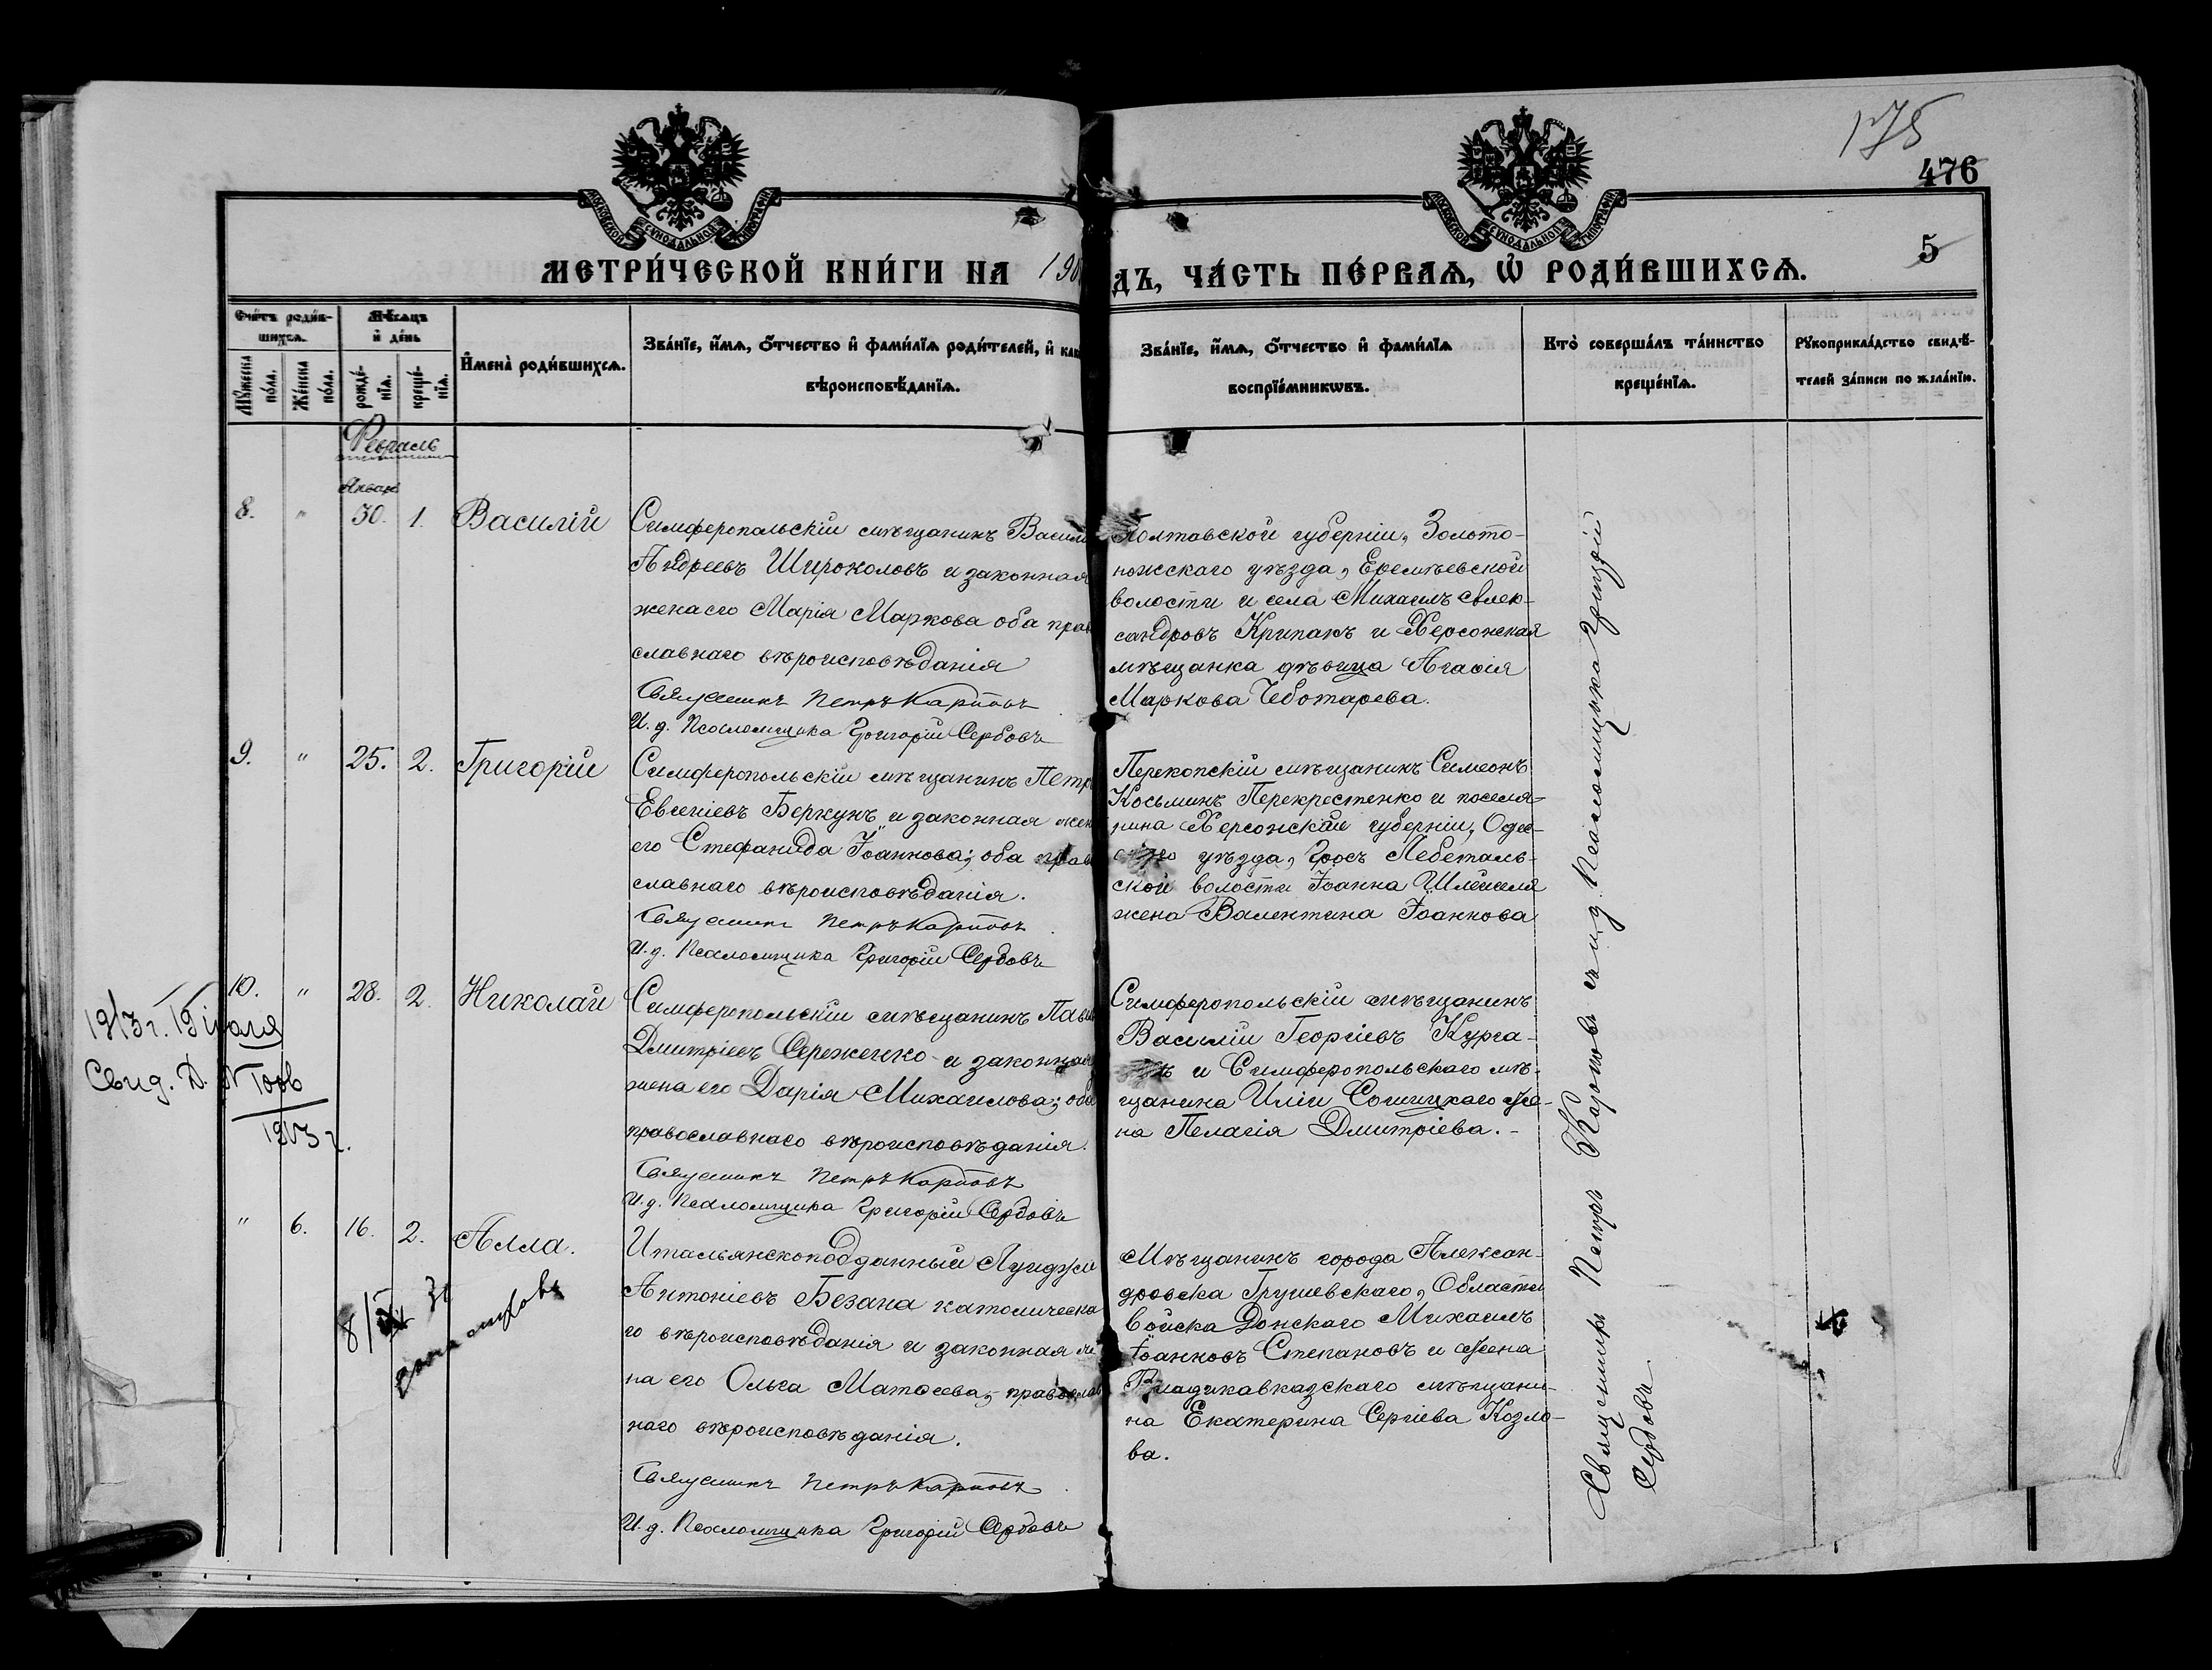 175
476
5
МЕТРИ́ЧЕСКОЙ КНИ́ГИ НА 190
ДЪ, ЧА́СТЬ ПЕ́РВАѦ, Ѡ҆ РОДИ́ВШИХСѦ.
МОСКОВСКОЙ СѴНОДАЛЬНОЙ ТИПОГРАФІИ
МОСКОВСКОЙ СѴНОДАЛЬНОЙ ТИПОГРАФІИ
Сче́тъ роди́в-
шихсѧ.
Му́жеска по́ла.
Же́нска по́ла.
Мѣ́сѧцъ
и҆ де́нь
рожде́-
нїѧ.
креще́-
нїѧ.
И҆мена̀ роди́вшихсѧ.
Зва́нїе, и҆́мѧ, ѻ҆́тчество и҆ фами́лїѧ роди́телей, и҆ как
вѣроисповѣ́данїѧ.
Зва́нїе, и҆́мѧ, ѻ҆́тчество и҆ фами́лїѧ
воспрїе́мникѡвъ.
Кто̀ соверша́лъ та́инство
креще́нїѧ.
Рꙋкоприкла́дство свидѣ́-
телей за́писи по жела́нїю.
Февраль
Январ
8. " 30. 1. Василій
Симферопольскій мѣщанинъ Васили
Андреевъ Широколовъ и законная
жена его Марія Маркова оба прав
славнаго вѣроисповѣданія
Священникъ Петръ Карповъ
И. д. Псаломщика Григорій Сербовъ
Полтавской губерніи, Золото-
ножскаго уѣзда, Еремѣевской
волости и села Михаилъ Алек-
сандровъ Крипакъ и Херсонская
мѣщанка дѣвица Агафія
Маркова Чеботарева.
9. " 25. 2. Григорій
Симферопольскій мѣщанинъ Петр
Евгеніевъ Беркунъ и законная жен
его Стефанида Іоаннова; оба прав
славнаго вѣроисповѣданія.
Священникъ Петръ Карповъ
И. д. Псаломщика Григорій Сербовъ
Перекопскій мѣщанинъ Симеонъ
Косьминъ Перекрестенко и поселя-
нина Херсонской губерніи, Одес-
уѣзда, Гросъ Либенталь-
ской волости Іоанна
жена Валентина Іоаннова
10. " 28. 2. Николай
Симферопольскій мѣщанинъ Пав
Дмитріевъ Сереженко и законная
жена его Дарія Михаилова; оба
православнаго вѣроисповѣданія.
Священникъ Петръ Карповъ
И. д. Псаломщика Григорій Сербовъ
Симферопольскій мѣщанинъ
Василій Георгіевъ Курга-
и Симферопольскаго мѣ-
щанина Иліи Сошицкаго же-
на Пелагія Дмитріева.
1913 г. 19 іюля
Свид. Д.
1913 г.
" 6. 16. 2. Алла.
Итальянскоподданный Луиджи
Антоніевъ Безана католическа
го вѣроисповѣданія и законная же
на его Ольга Матфеева, православ
наго вѣроисповѣданія.
Священникъ Петръ Карповъ
И. д. Псаломщика Григорій Сербовъ
Мѣщанинъ города Алексан-
дровска Грушевскаго, Области
Войска Донскаго Михаилъ
Іоанновъ Степановъ и жена
Владикавказскаго мѣщани-
на Екатерина Сергіева Козло-
ва.
Священникъ Петръ Карповъ съ и. д. Псаломщика Григорій
Сербовъ